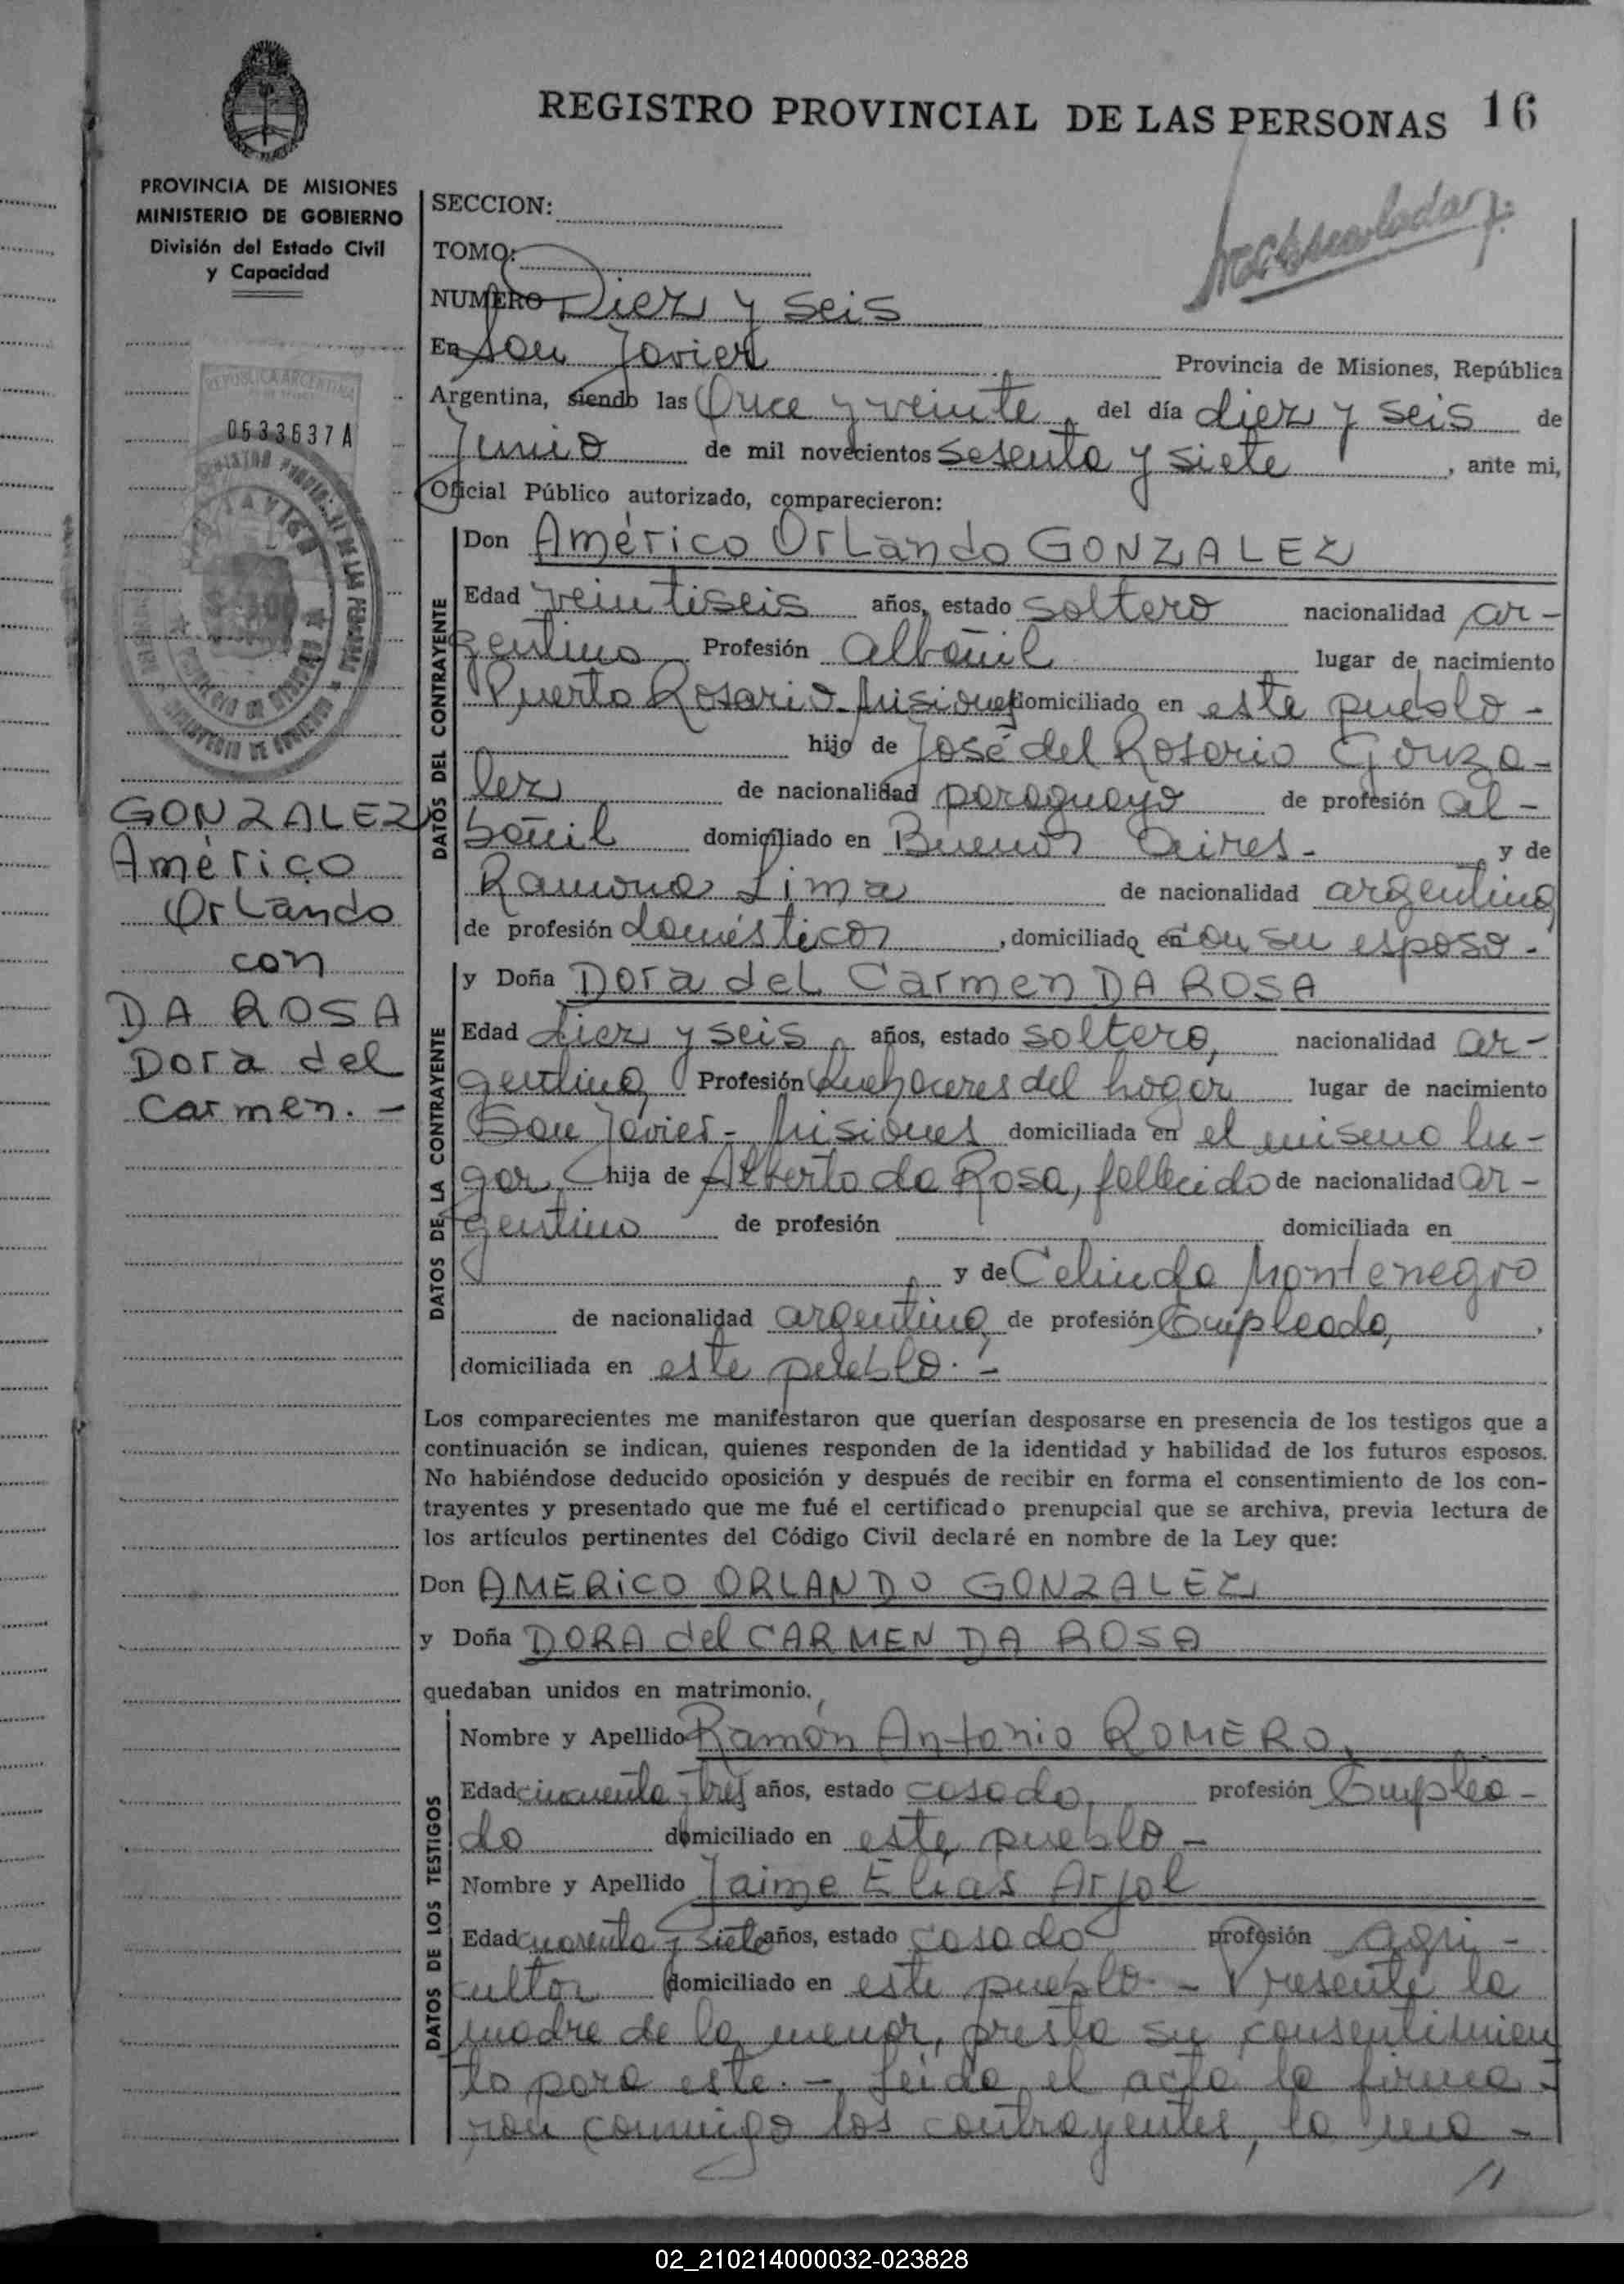 REGISTRO PROVINCIAL DE LAS PERSONAS 16
PROVINCIA DE MISIONES
MINISTERIO DE GOBIERNO
División del Estado Civil
y Capacidad
REPUBLICA ARGENTINA
0533637 A
GONZALEZ
Américo
Orlando
con
DA ROSA
Dora del
Carmen. -
SECCION:
TOMO:
NUMERO Diez y seis
En San Javier Provincia de Misiones, República
Argentina, siendo las Once y veinte, del día diez y seis de
Junio de mil novecientos sesenta y siete, ante mi,
Oficial Público autorizado, comparecieron:
DATOS DEL CONTRAYENTE
Don Américo Orlando GONZALEZ
Edad veintiseis años, estado soltero nacionalidad ar-
gentino Profesión albañil lugar de nacimiento
Puerto Rosario-Misiones domiciliado en este pueblo -
hijo de José del Rosario Gonza-
lez de nacionalidad paraguayo de profesión al-
bañil domiciliado en Buenos Aires- y de
Ramona Lima de nacionalidad argentina,
de profesión doméstica, domiciliado en con su esposo.-
DATOS DE LA CONTRAYENTE
y Doña Dora del Carmen DA ROSA
Edad diez y seis, años, estado soltera, nacionalidad ar-
gentina, Profesión Quehaceres del hogar lugar de nacimiento
San Javier- Misiones domiciliada en el mismo lu-
gar, hija de Alberto da Rosa, fallecido de nacionalidad ar-
gentino de profesión domiciliada en
y de Celinda Montenegro
de nacionalidad argentina, de profesión Empleada,
domiciliada en este pueblo. -
Los comparecientes me manifestaron que querían desposarse en presencia de los testigos que a
continuación se indican, quienes responden de la identidad y habilidad de los futuros esposos.
No habiéndose deducido oposición y después de recibir en forma el consentimiento de los con-
trayentes y presentado que me fué el certificado prenupcial que se archiva, previa lectura de
los artículos pertinentes del Código Civil declaré en nombre de la Ley que:
Don AMERICO ORLANDO GONZALEZ
y Doña DORA del CARMEN DA ROSA
quedaban unidos en matrimonio.
DATOS DE LOS TESTIGOS
Nombre y Apellido Ramón Antonio ROMERO,
Edad cincuenta y tres años, estado casado, profesión Emplea-
do domiciliado en este pueblo -
Nombre y Apellido Jaime Elias Arjol
Edad cuarenta y siete años, estado casado profesión agri-
cultor domiciliado en este pueblo. - Presente la
madre de la menor, presta su consentimien
to para este. - Leida el acta la firma-
ron conmigo los contrayentes, la ma-
//
02_210214000032-023828